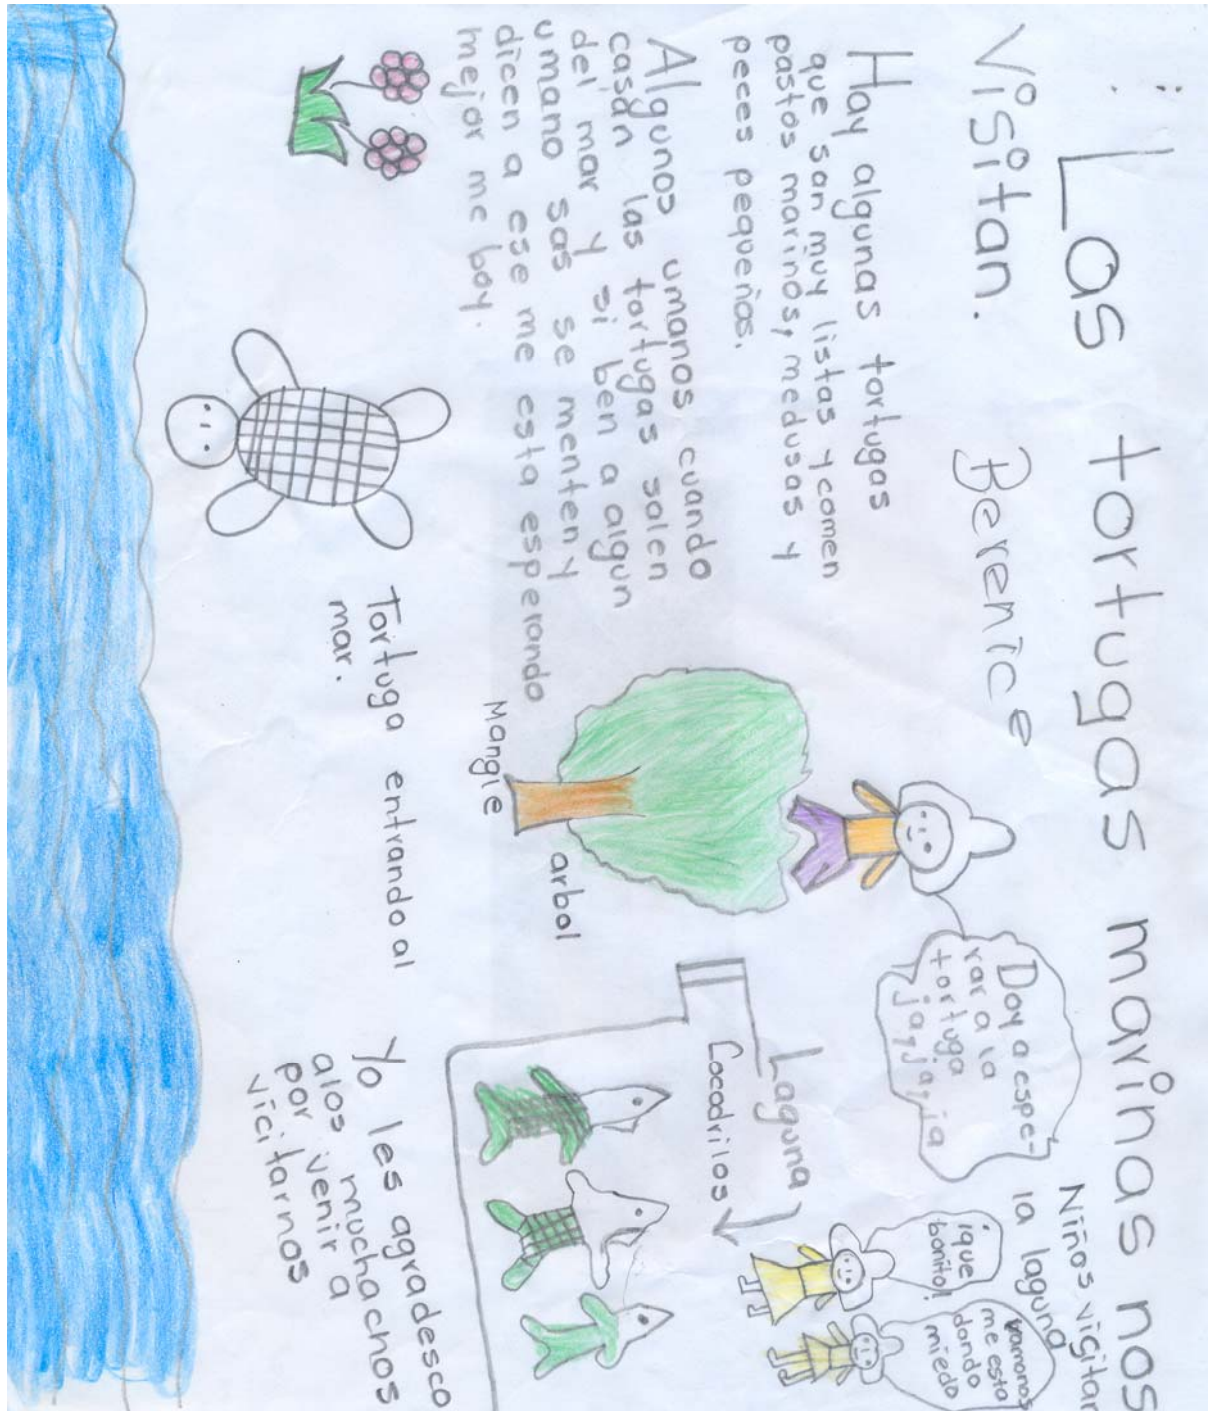 Las tortugas marinas nos
visitan.
Berenice
Hay algunas tortugas
que son muy listas y comen
pastos marinos, medusas y
peces pequeños.
Algunos umanos cuando
casan las tortugas salen
del mar y si ben a algun
umano sas se menten y
dicen a ese me esta esperando
mejor me boy.
Doy a espe-
rar a la
tortuga
jajjajja
Niños vicitan
la laguna
¡que
bonito!
vamonos
me esta
dando
miedo
Laguna
Cocodrilos
Mangle
arbol
Tortuga entrando al
mar.
Yo les agradesco
alos muchachos
por venir a
vicitarnos